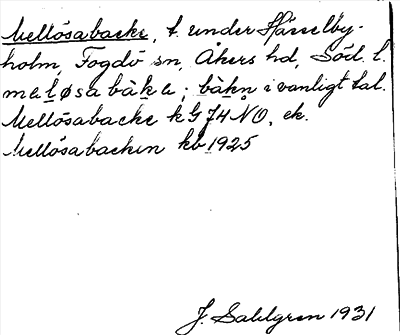 Mellösabacke, t. under Hässelby-
holm, Fogdö sn, Åkers hd, Söd. l.
meløsabàka; bàkn i vanligt tal.
Mellösabacke k G J4 NO, ek.
Mellösabacken kb 1925
J. Sahlgren 1931